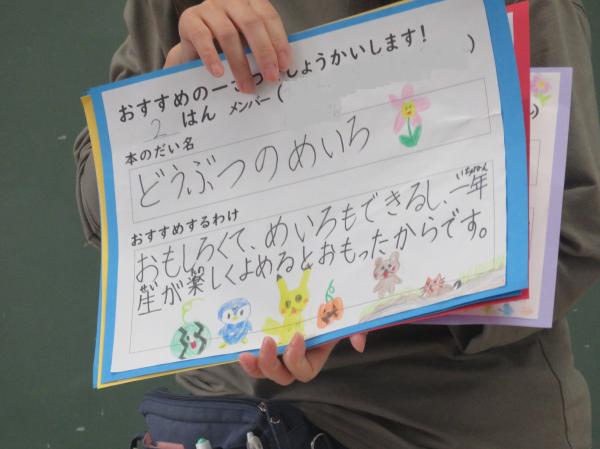 おすすめの一さつをしょうかいします!
2 はん メンバー( )
本のだい名
どうぶつのめいろ
おすすめするわけ
おもしろくて、めいろもできるし、一年
生が楽しくよめるとおもったからです。